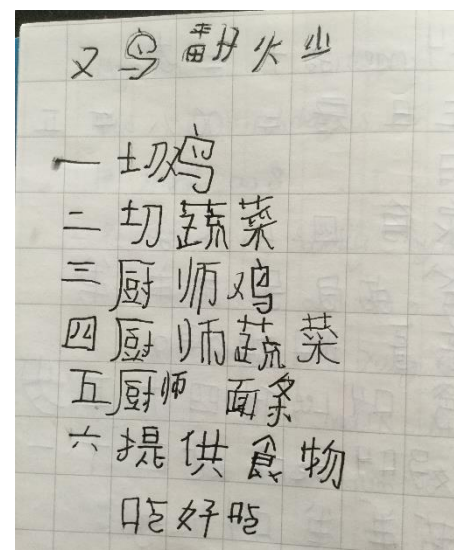 又鸟翻火少
一切鸡
二切蔬菜
三厨师鸡
四厨师蔬菜
五厨师 面条
六提供食物
吃好吃